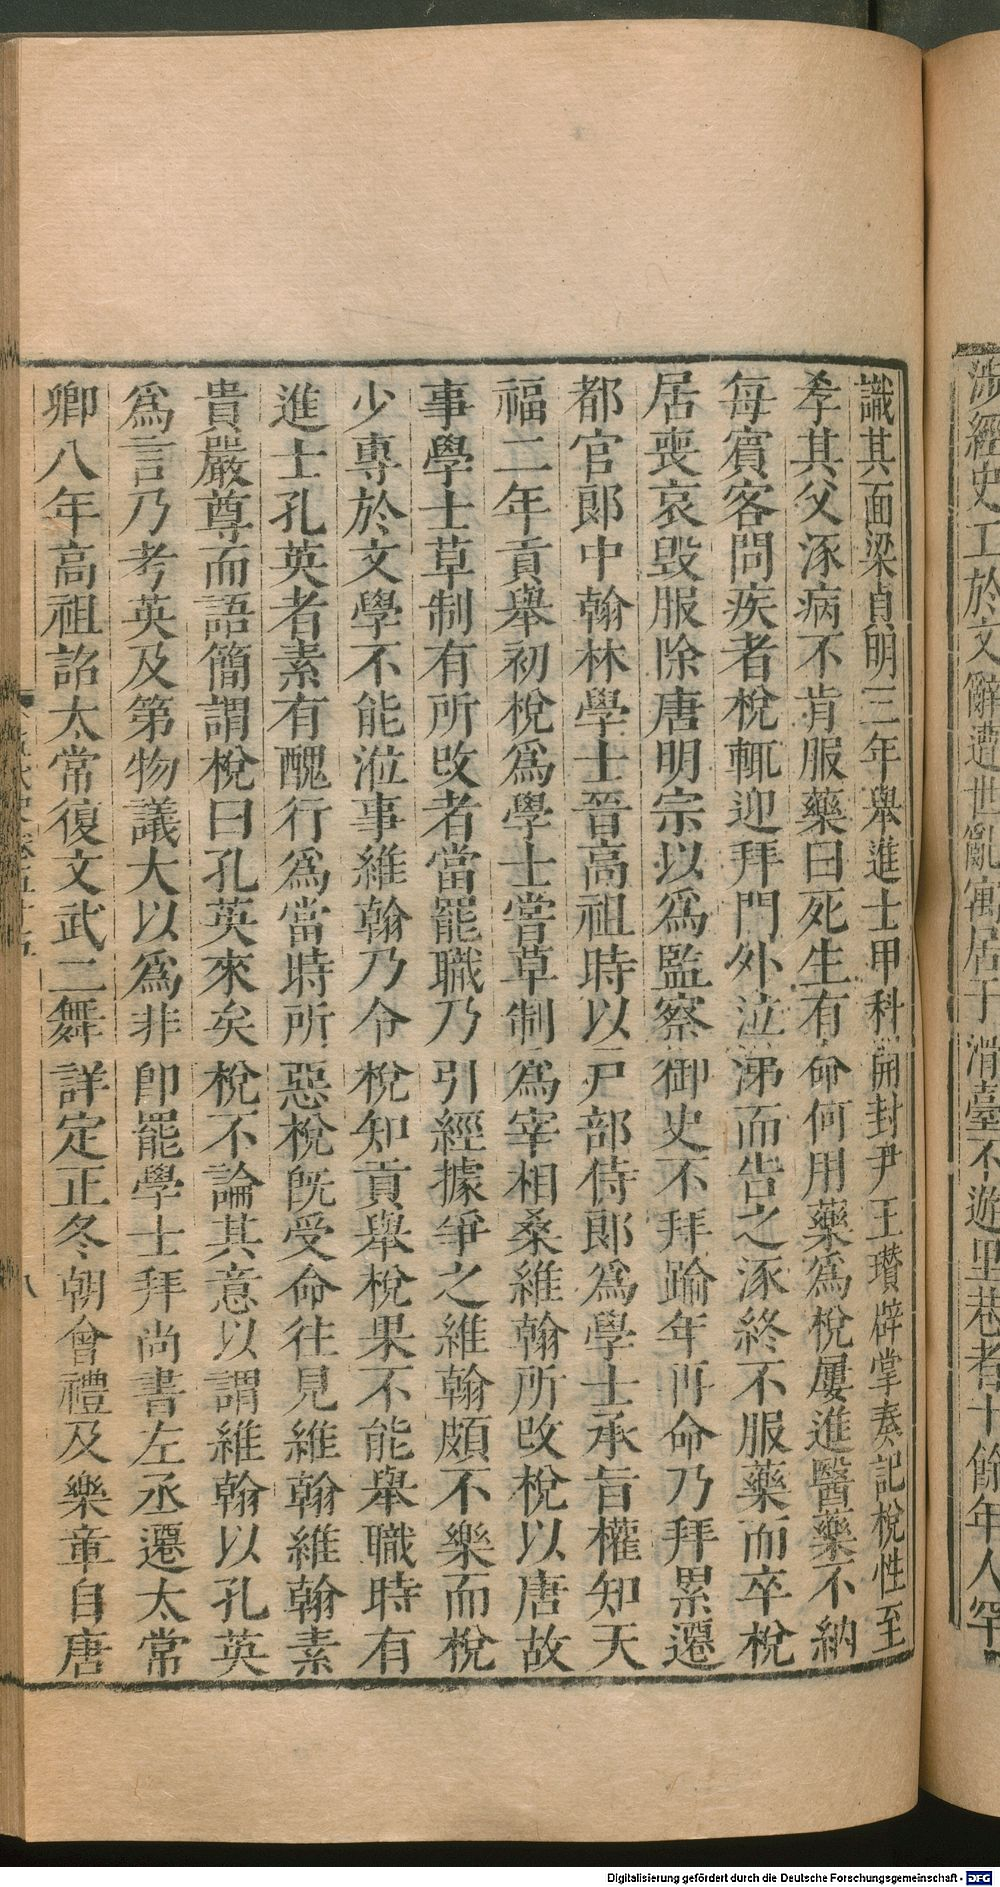 涉經史工於文辭遭世亂寓居于滑臺不遊里巷者十餘年人罕
識其面梁貞明三年舉進士甲科開封尹王瓚辟掌奏記梲性至
孝其父涿病不肯服藥曰死生有命何用藥爲梲屢進醫藥不納
每賓客問疾者梲輒迎拜門外泣涕而告之涿終不服藥而卒梲
居喪哀毀服除唐明宗以爲監察御史不拜踰年再命乃拜累遷
都官郎中翰林學士晉高祖時以戸部侍郎爲學士承旨權知天
福二年貢舉初梲爲學士嘗草制爲宰相桑維翰所攺梲以唐故
事學士草制有所攺者當罷職乃引經據爭之維翰頗不樂而梲
少專於文學不能涖事維翰乃令梲知貢舉梲果不能舉職時有
進士孔英者素有醜行爲當時所惡梲旣受命往見維翰維翰素
貴嚴尊而語簡謂梲曰孔英來矣梲不論其意以謂維翰以孔英
爲言乃考英及第物議大以爲非卽罷學士拜尚書左丞遷太常
卿八年高祖詔太常復文武二舞詳定正冬朝會禮及樂章自唐
八
Digitalisierung gefördert durch die Deutsche Forschungsgemeinschaft - DFG